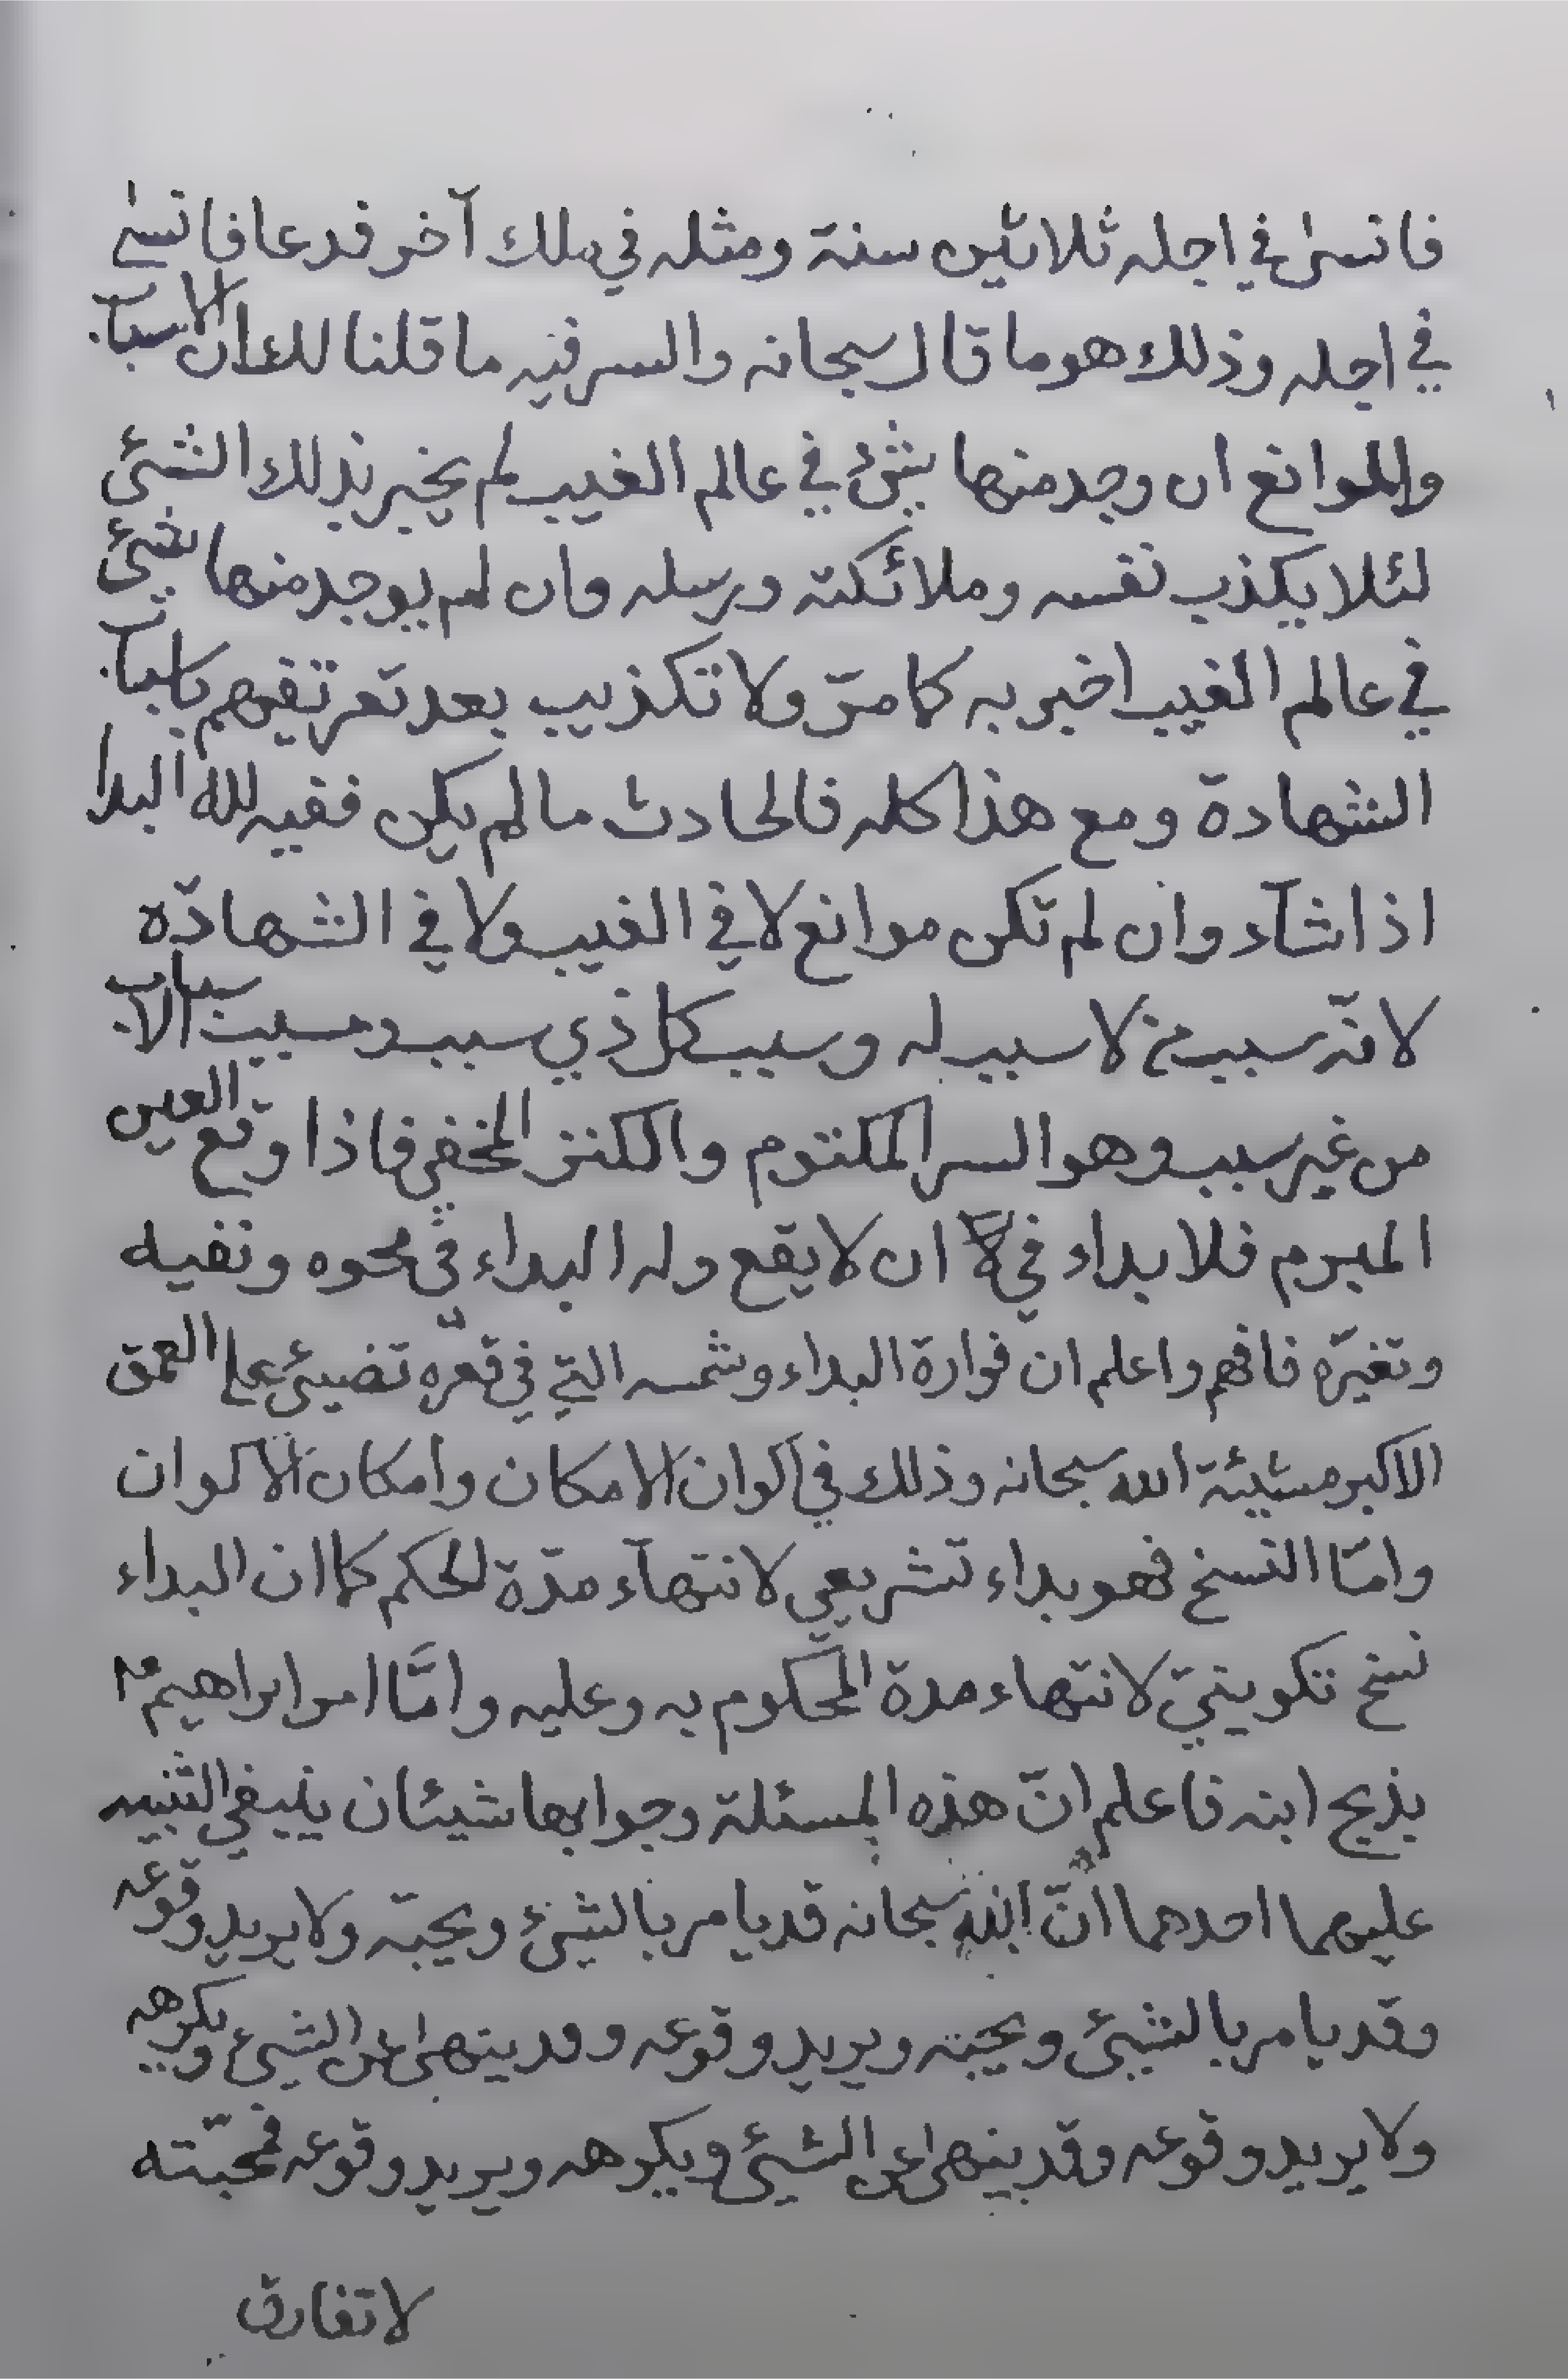 فانسىٰ في اجله ثلاثين سنة ومثله في ملك آخر فدعا فانسىٰ
في اجله وذلك هو ما قال سبحانه والسر فيه ما قلنا لك ان الاسباب
والموانع ان وجد منها شئ في عالم الغيب لم يخبر بذلك الشئ
لئلا يكذب نفسه وملائكته ورسله وان لم يوجد منها شئ
في عالم الغيب اخبر به كما مرّ ولا تكذيب بعد تعريفهم باسباب
الشهادة ومع هذا كله فالحادث ما لم يكن ففيه لله البدا
اذا شآء وان لم تكن موانع لا في الغيب ولا في الشهادة
لانّه سبب من لا سبب له وسبب كل ذي سبب ومسبب الاسباب
من غير سبب وهو السر المكتوم والكنز المخفي فاذا وقع العين
المبرم فلا بداء في ان لا يقع وله البداء في محوه ونفيه
وتغيّره فافهم واعلم ان فوارة البداء وشمسه التي في قعره تضيئ على العمق
الاكبر مشيئة الله سبحانه وذلك في اكوان الامكان وامكان الاكوان
وامّا النسخ فهو بداء تشريعي لانتهآء مدّة الحكم كما ان البداء
نسخ تكوينيّ لانتهاء مدة المحكوم به وعليه وامَّا امر ابراهيم ع
بذبح ابنه فاعلم انّ هذه المسئلة وجوابها شيئان ينبغي التنبيه
عليهما احدهما انّ الله سبحانه قد يامر بالشئ ويحبّه ولا يريد وقوعه
وقد يامر بالشيئ ويحبّه ويريد وقوعه وقد ينهىٰ عن الشيئ ويكرهه
ولا يريد وقوعه وقد ينهىٰ عن الشيئ ويكرهه ويريد وقوعه فمحبّته
لا تفارق